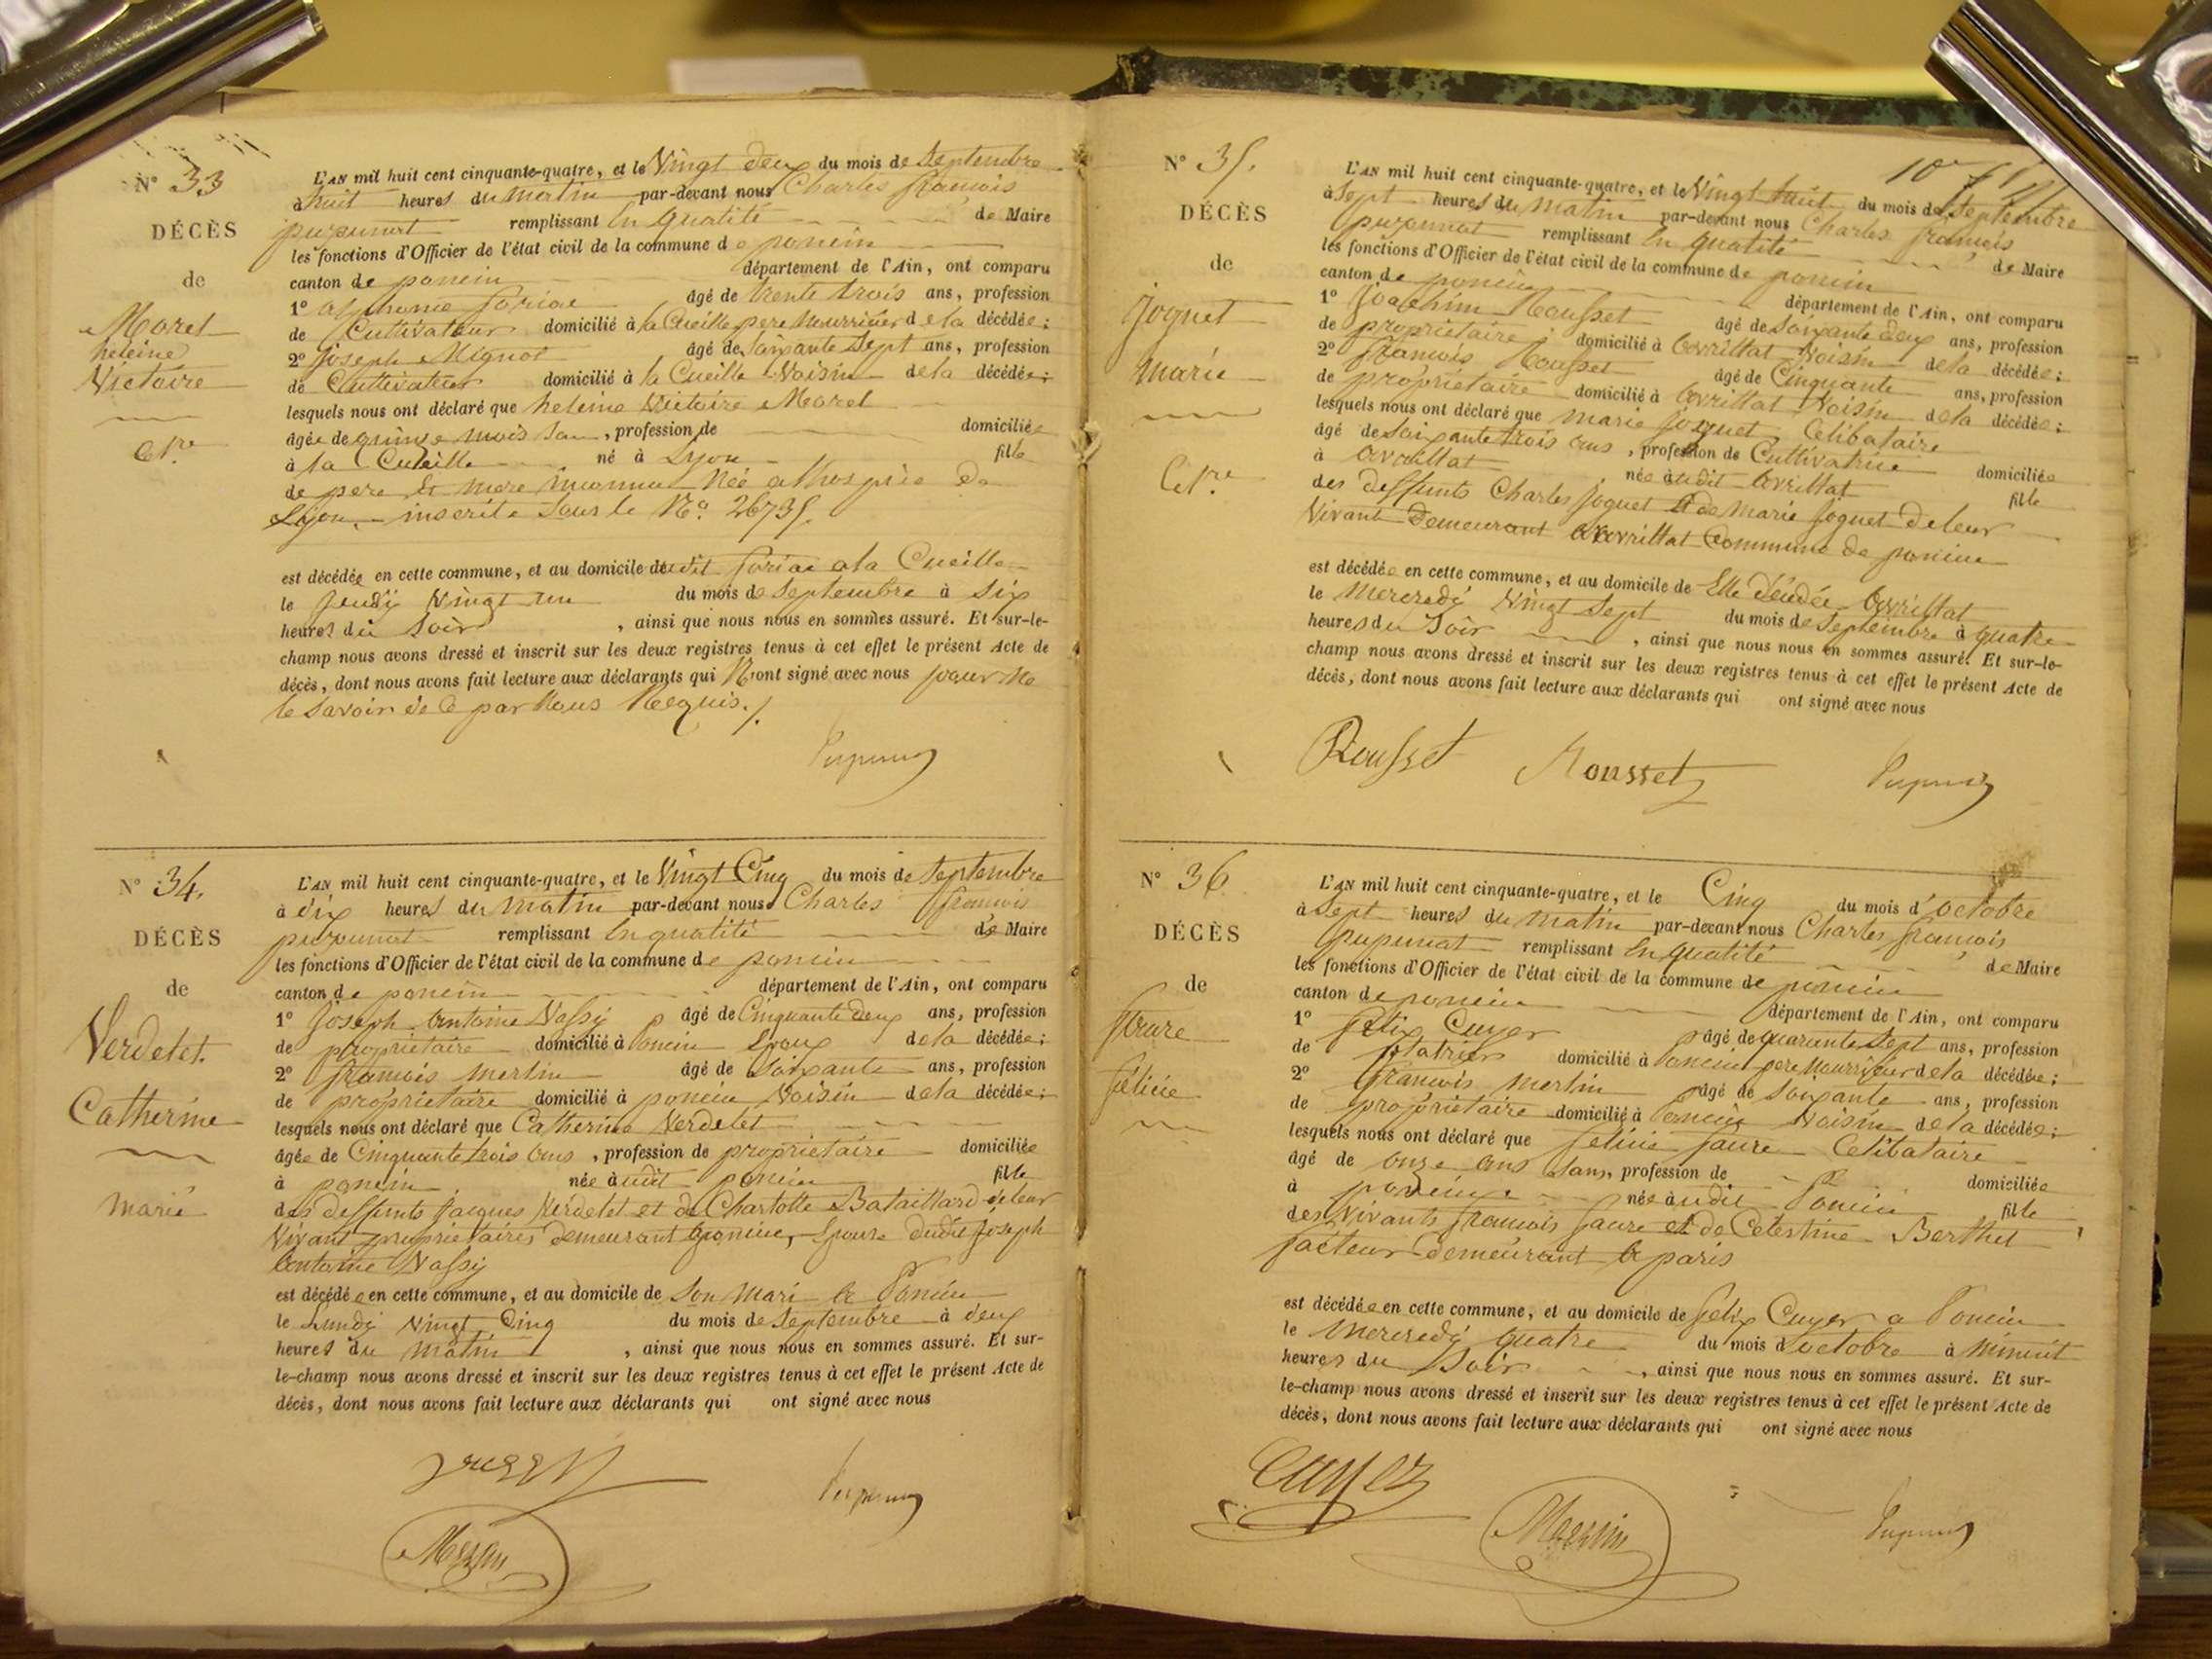 N° 33
DÉCÈS
de
Morel
heleine
Victoire
Cel.re
L'AN mil huit cent cinquante-quatre, et le Vingt deux du mois de Septembre
à huit heures du matin par-devant nous Charles françois
pupunat remplissant En qualité de Maire
les fonctions d'Officier de l'état civil de la commune de poncin
canton de poncin département de l'Ain, ont comparu
1° âgé de trente trois ans, profession
de Cultivateur domicilié à la Cueille pere Nourricier de la décédée;
2° Joseph Mignot âgé de soixante Sept ans, profession
de Cultivateur domicilié à la Cueille Voisin de la décédée;
lesquels nous ont déclaré que heleine Victoire Morel
âgée de quinze mois San, profession de domiciliée
à la Cueille né à Lyon fille
de pere et mere inconnu Née a lhospice De
Lyon, inscrite Sous le N° 26735.
est décédée en cette commune, et au domicile dudit a la Cueille
le Jeudy Vingt un du mois de Septembre à Six
heures du Soir, ainsi que nous nous en sommes assuré. Et sur-le-
champ nous avons dressé et inscrit sur les deux registres tenus à cet effet le présent Acte de
décès, dont nous avons fait lecture aux déclarants qui N'ont signé avec nous pour Ne
le Savoir de ce par Nous Requis./.
N° 34.
DÉCÈS
de
Verdelet.
Catherine
marié
L'AN mil huit cent cinquante-quatre, et le Vingt Cinq du mois de Septembre
à dix heures du matin par-devant nous Charles françois
pupunat remplissant En qualité de Maire
les fonctions d'Officier de l'état civil de la commune de poncin
canton de poncin département de l'Ain, ont comparu
1° Joseph Antoine Vassy âgé de Cinquante deux ans, profession
de propriétaire domicilié à Poncin Epoux de la décédée;
2° françois merlin âgé de Soixante ans, profession
de propriétaire domicilié à poncin Voisin de la décédée;
lesquels nous ont déclaré que Catherine Verdelet
âgée de Cinquante trois ans, profession de propriétaire domiciliée
à poncin née audit poncin fille
des deffunts Jacques Verdelet et de Charlotte Bataillard de leur
Vivant propriétaires demeurant a poncin, Epouse dudit Joseph
Antoine Vassy
est décédée en cette commune, et au domicile de Son Mari a Poncin
le Lundy Vingt Cinq du mois de Septembre à deux
heures du matin, ainsi que nous nous en sommes assuré. Et sur-
le-champ nous avons dressé et inscrit sur les deux registres tenus à cet effet le présent Acte de
décès, dont nous avons fait lecture aux déclarants qui ont signé avec nous
N° 35.
DÉCÈS
de
joguet
marie
Cel.re
L'AN mil huit cent cinquante-quatre, et le Vingt huit du mois de Septembre
à Sept heures du matin par-devant nous Charles françois
pupunat remplissant En qualité de Maire
les fonctions d'Officier de l'état civil de la commune de poncin
canton de poncin département de l'Ain, ont comparu
1° Joachim Rousset âgé de Soixante deux ans, profession
de propriétaire domicilié à Avrillat Voisin de la décédée;
2° françois Rousset âgé de Cinquante ans, profession
de propriétaire domicilié à Avrillat Voisin de la décédée;
lesquels nous ont déclaré que marie joguet Célibataire
âgé de Soixante trois ans, profession de Cultivatrice domiciliée
à Avrillat née audit Avrillat fille
des deffunts Charles joguet et de Marie joguet de leur
Vivant Demeurant a Avrillat Commune de poncin
est décédée en cette commune, et au domicile de Elle décédée Avrillat
le Mercredy Vingt Sept du mois de Septembre à quatre
heures du Soir, ainsi que nous nous en sommes assuré. Et sur-le-
champ nous avons dressé et inscrit sur les deux registres tenus à cet effet le présent Acte de
décès, dont nous avons fait lecture aux déclarants qui ont signé avec nous
Rousset Rousset
N° 36
DÉCÈS
de
faure
félicie
L'AN mil huit cent cinquante-quatre, et le Cinq du mois d'octobre
à Sept heures du matin par-devant nous Charles françois
pupunat remplissant En qualité de Maire
les fonctions d'Officier de l'état civil de la commune de poncin
canton de poncin département de l'Ain, ont comparu
1° félix Cuyer âgé de quarante Sept ans, profession
de domicilié à Poncin pere Nourricier de la décédée;
2° françois merlin âgé de Soixante ans, profession
de propriétaire domicilié à Poncin Voisin de la décédée;
lesquels nous ont déclaré que félicie faure Célibataire
âgé de onze ans Sans, profession de domiciliée
à poncin née audit Poncin fille
des Vivants françois faure et de Celestine Berthet
facteur demeurant a paris
est décédée en cette commune, et au domicile de félix Cuyer a Poncin
le Mercredy quatre du mois d'octobre à Minuit
heures du Soir, ainsi que nous nous en sommes assuré. Et sur-
le-champ nous avons dressé et inscrit sur les deux registres tenus à cet effet le présent Acte de
décès, dont nous avons fait lecture aux déclarants qui ont signé avec nous
Cuyer